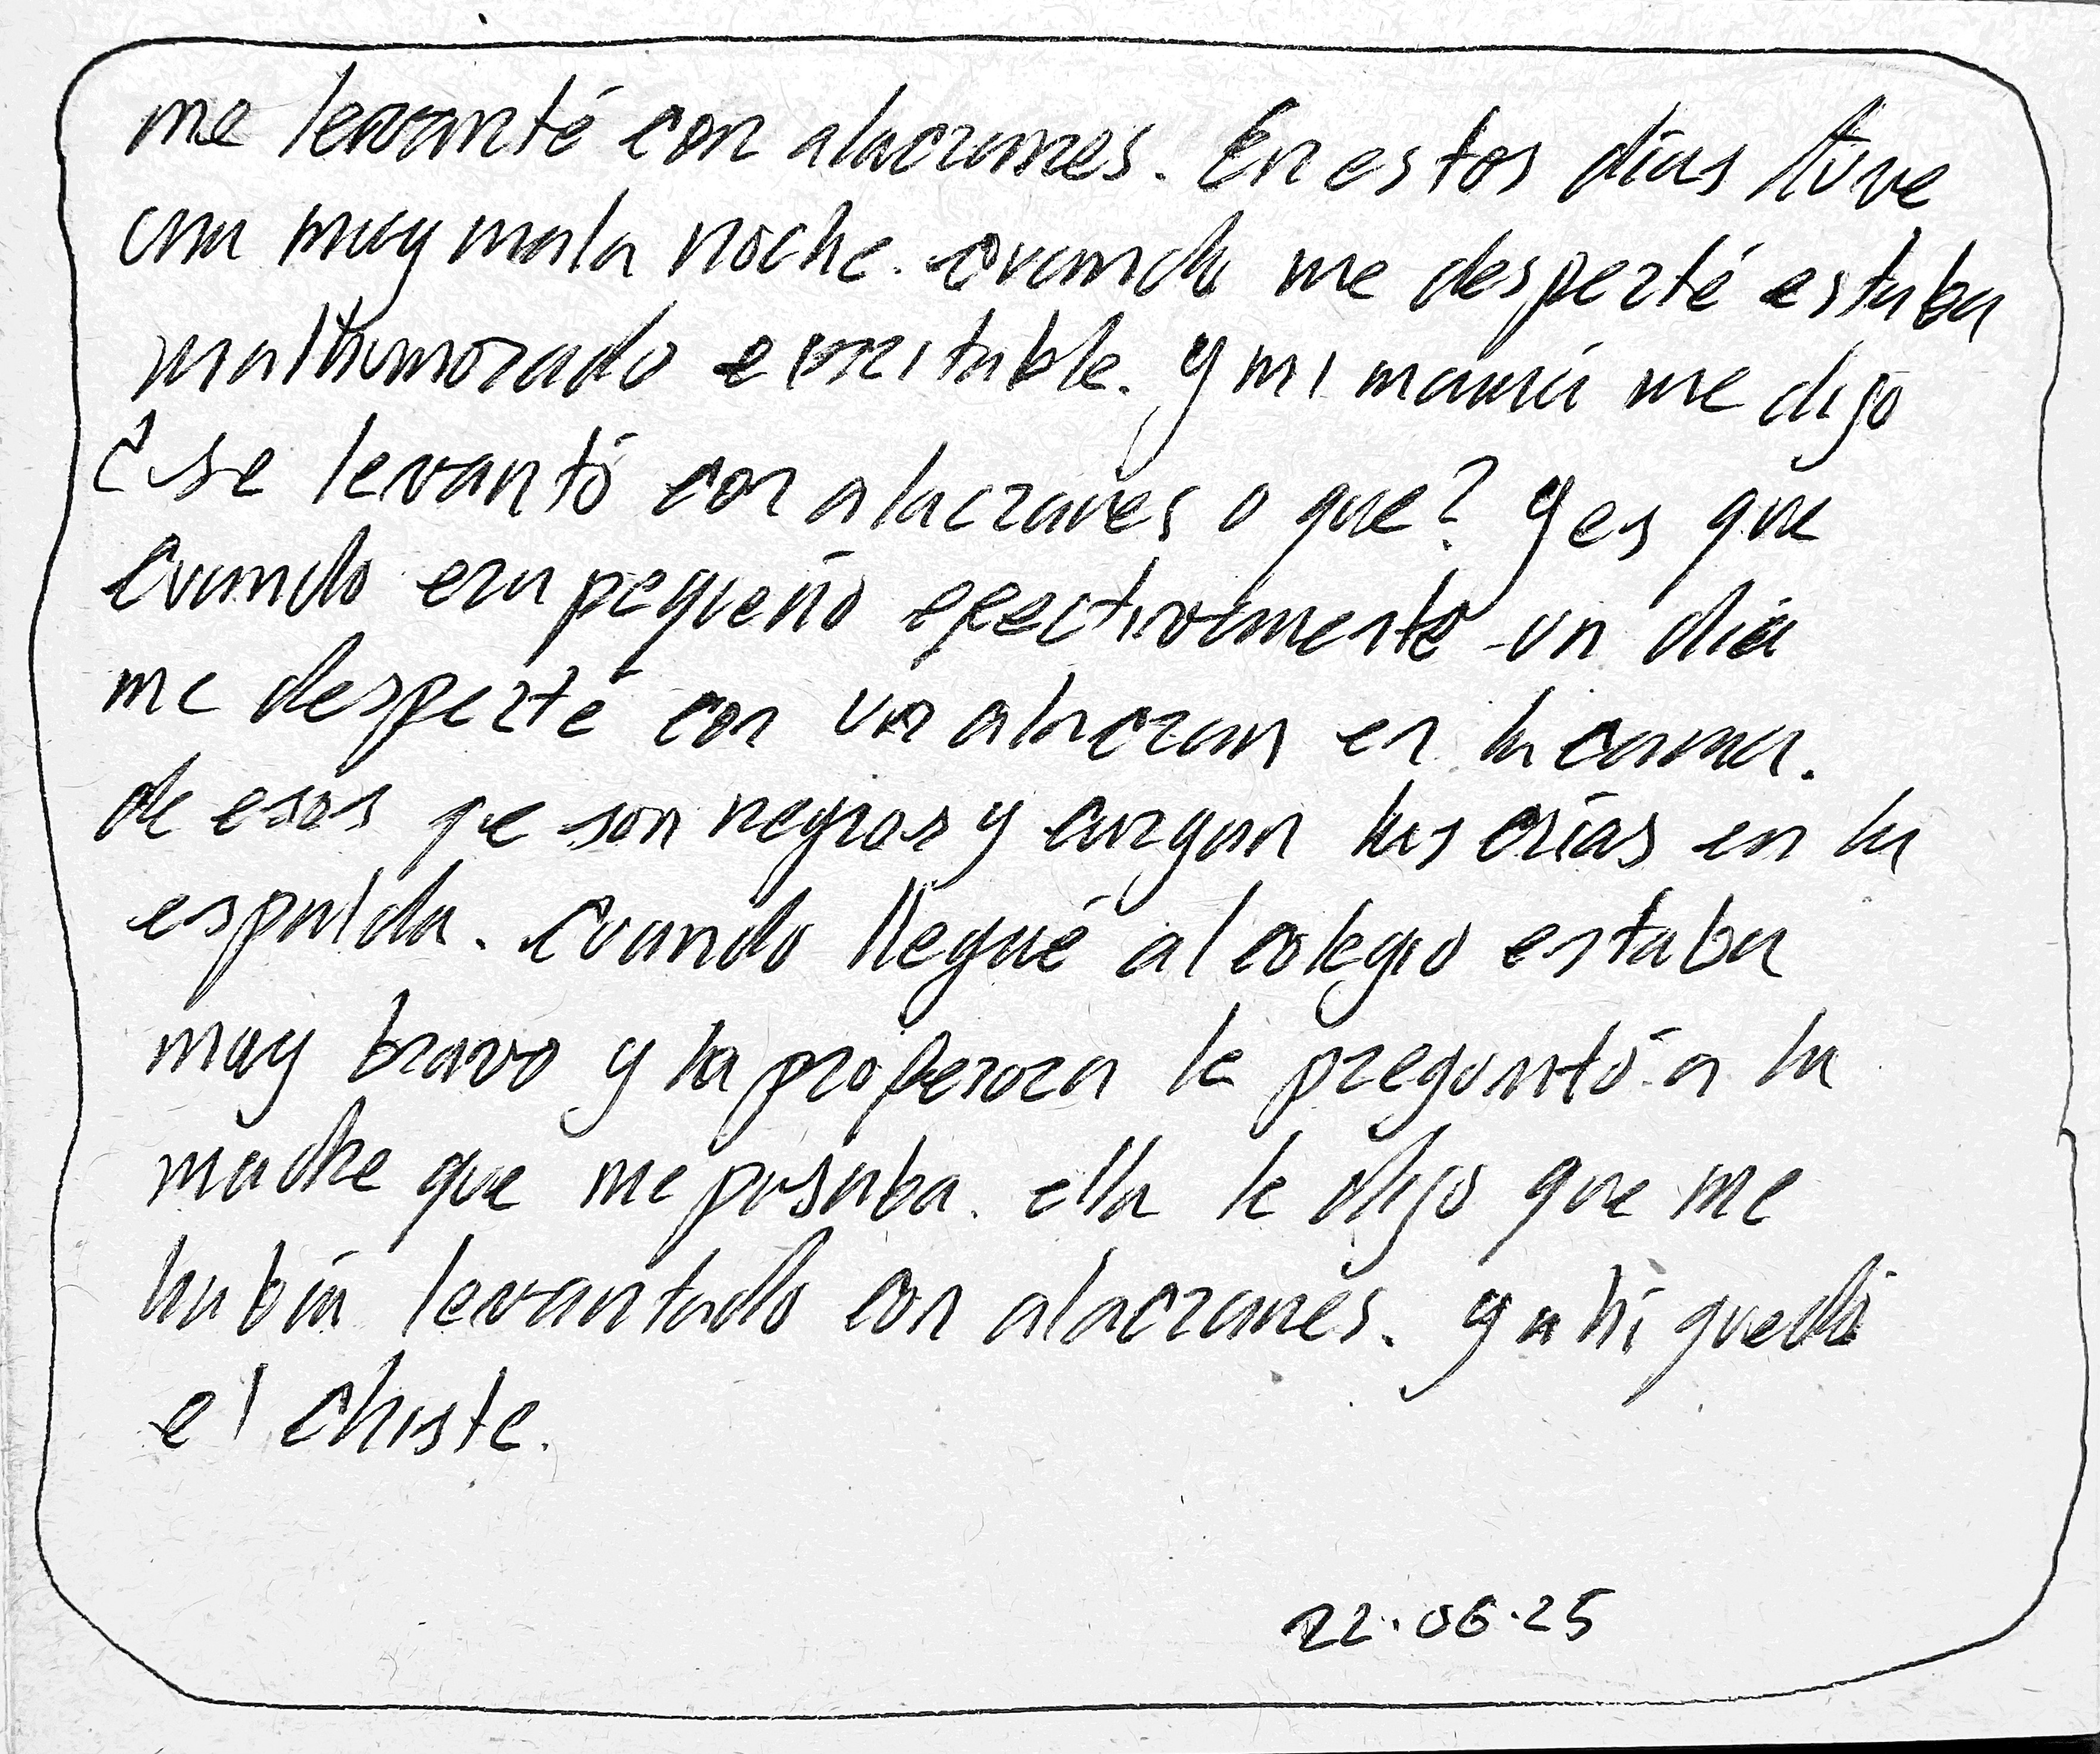 me levanté con alacranes. En estos días tuve
una muy mala noche. cuando me desperté estaba
malhumorado e irritable. y mi mamá me dijo
¿se levantó con alacranes o que? y es que
cuando era pequeño efectivamente un día
me desperté con un alacran en la cama.
de esos qe son negros y cargan las crías en la
espalda. cuando llegué al colegio estaba
muy bravo y la profesora le preguntó a la
madre que me pasaba. ella le dijo que me
había levantado con alacranes. y ahí quedó
el chiste.
22.06.25